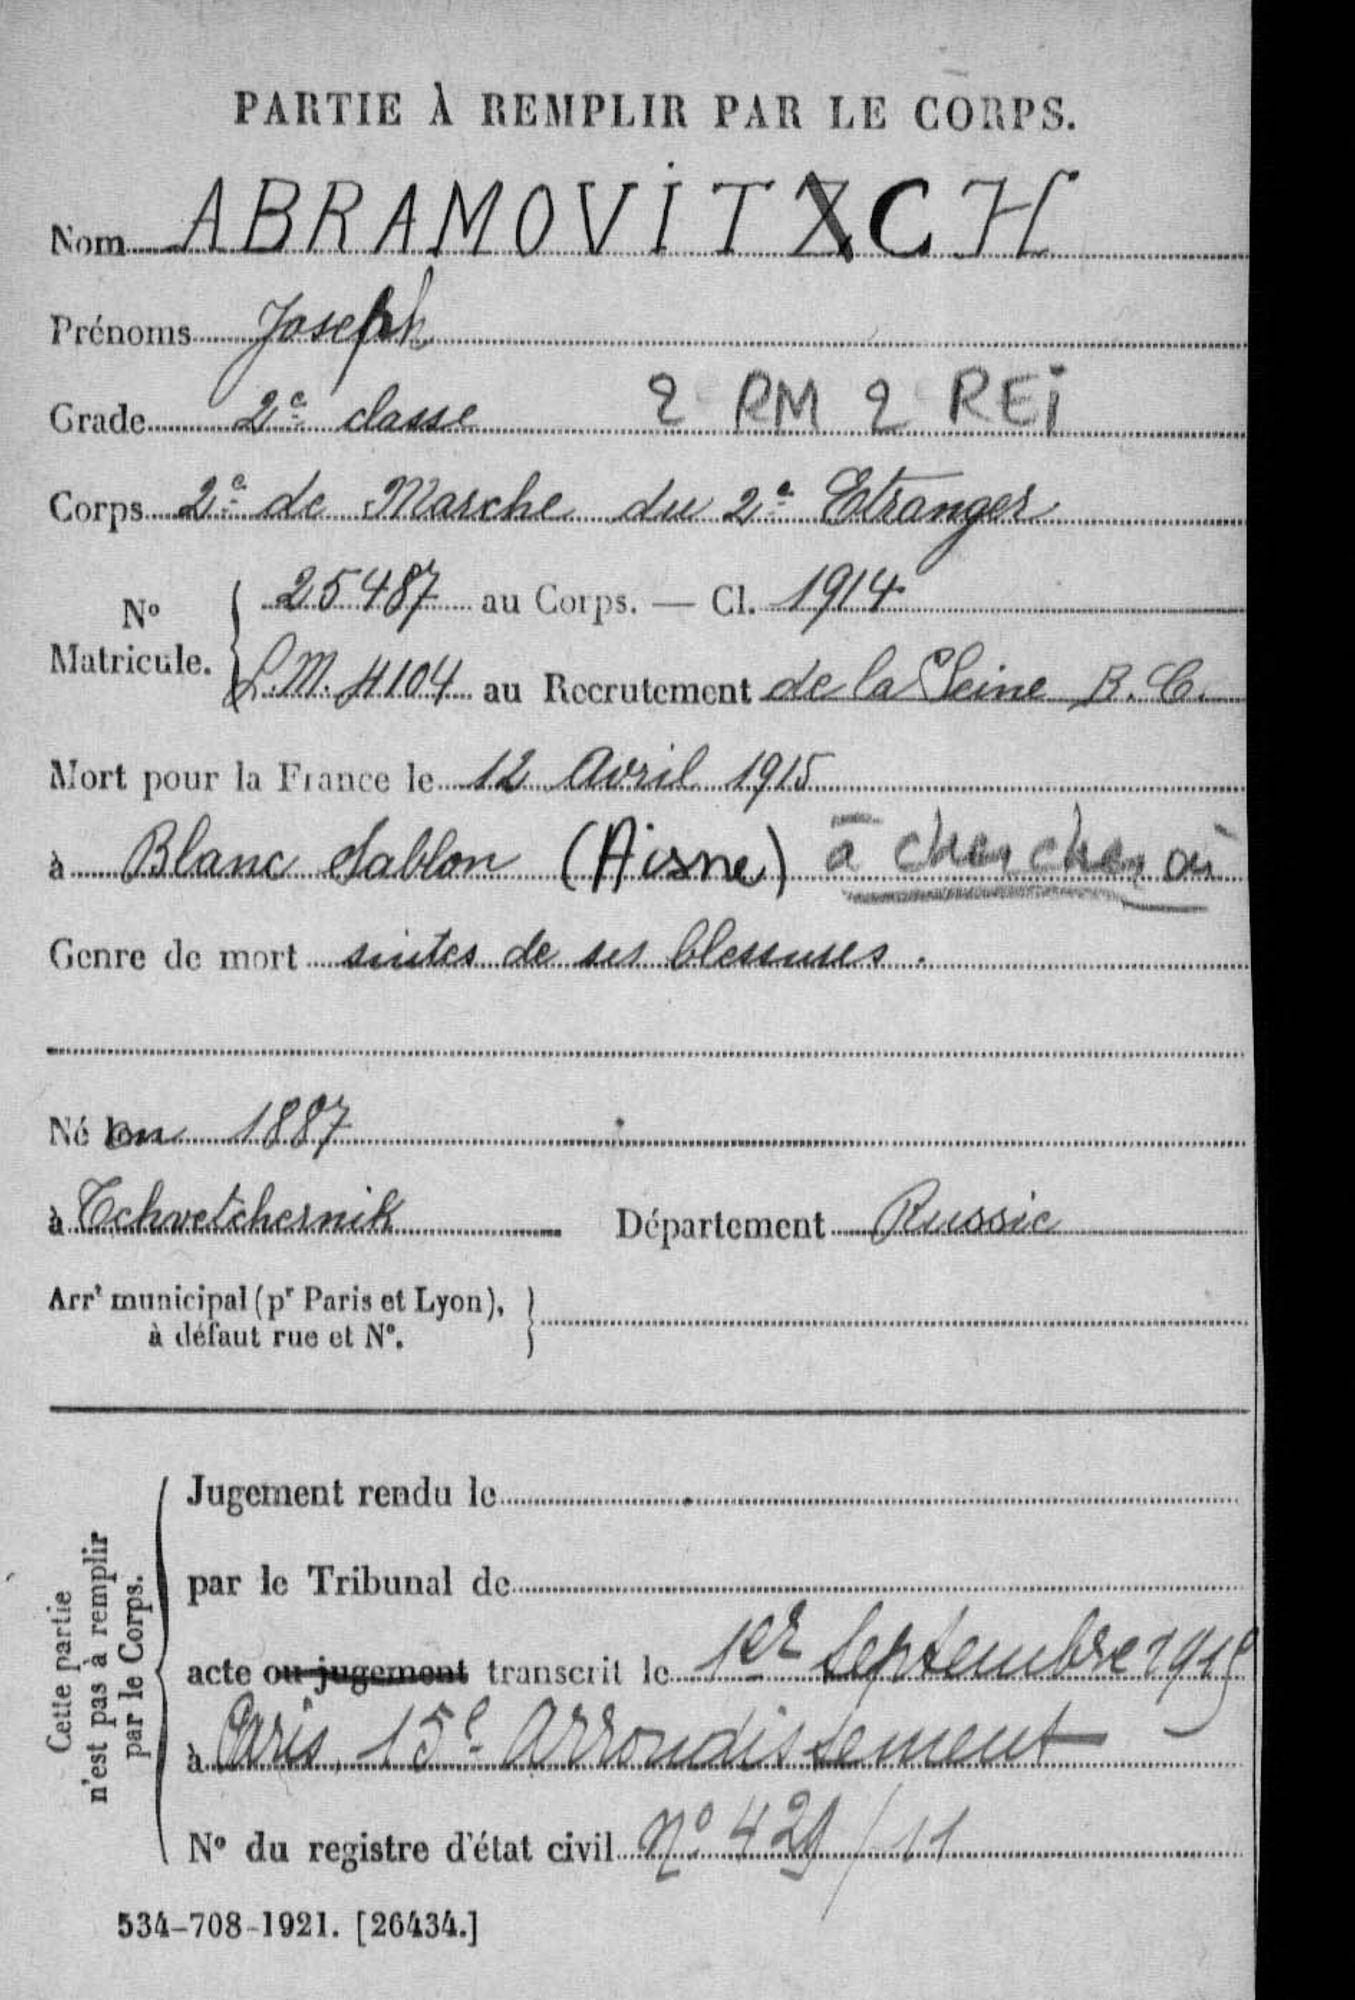 PARTIE À REMPLIR PAR LE CORPS.
Nom ABRAMOVITCH
Prénoms Joseph
Grade 2e classe 2 RM 2 REi
Corps 2e de Marche du 2e Etranger
No Matricule. 25487 au Corps. — Cl. 1914
L.M. 4104 au Recrutement de la Seine B. C.
Mort pour la France le 12 Avril 1915
à Blanc Sablon (Aisne) à chercher
Genre de mort suites de ses blessures.
Né en 1887
à Tchvetchernik Département Russie
Arrt municipal (pr Paris et Lyon), à défaut rue et No.
Cette partie n'est pas à remplir par le Corps.
Jugement rendu le
par le Tribunal de
acte ou jugement transcrit le 1er Septembre 1915
à Paris 15e Arrondissement
No du registre d'état civil No 429/11
534-708-1921. [26434.]